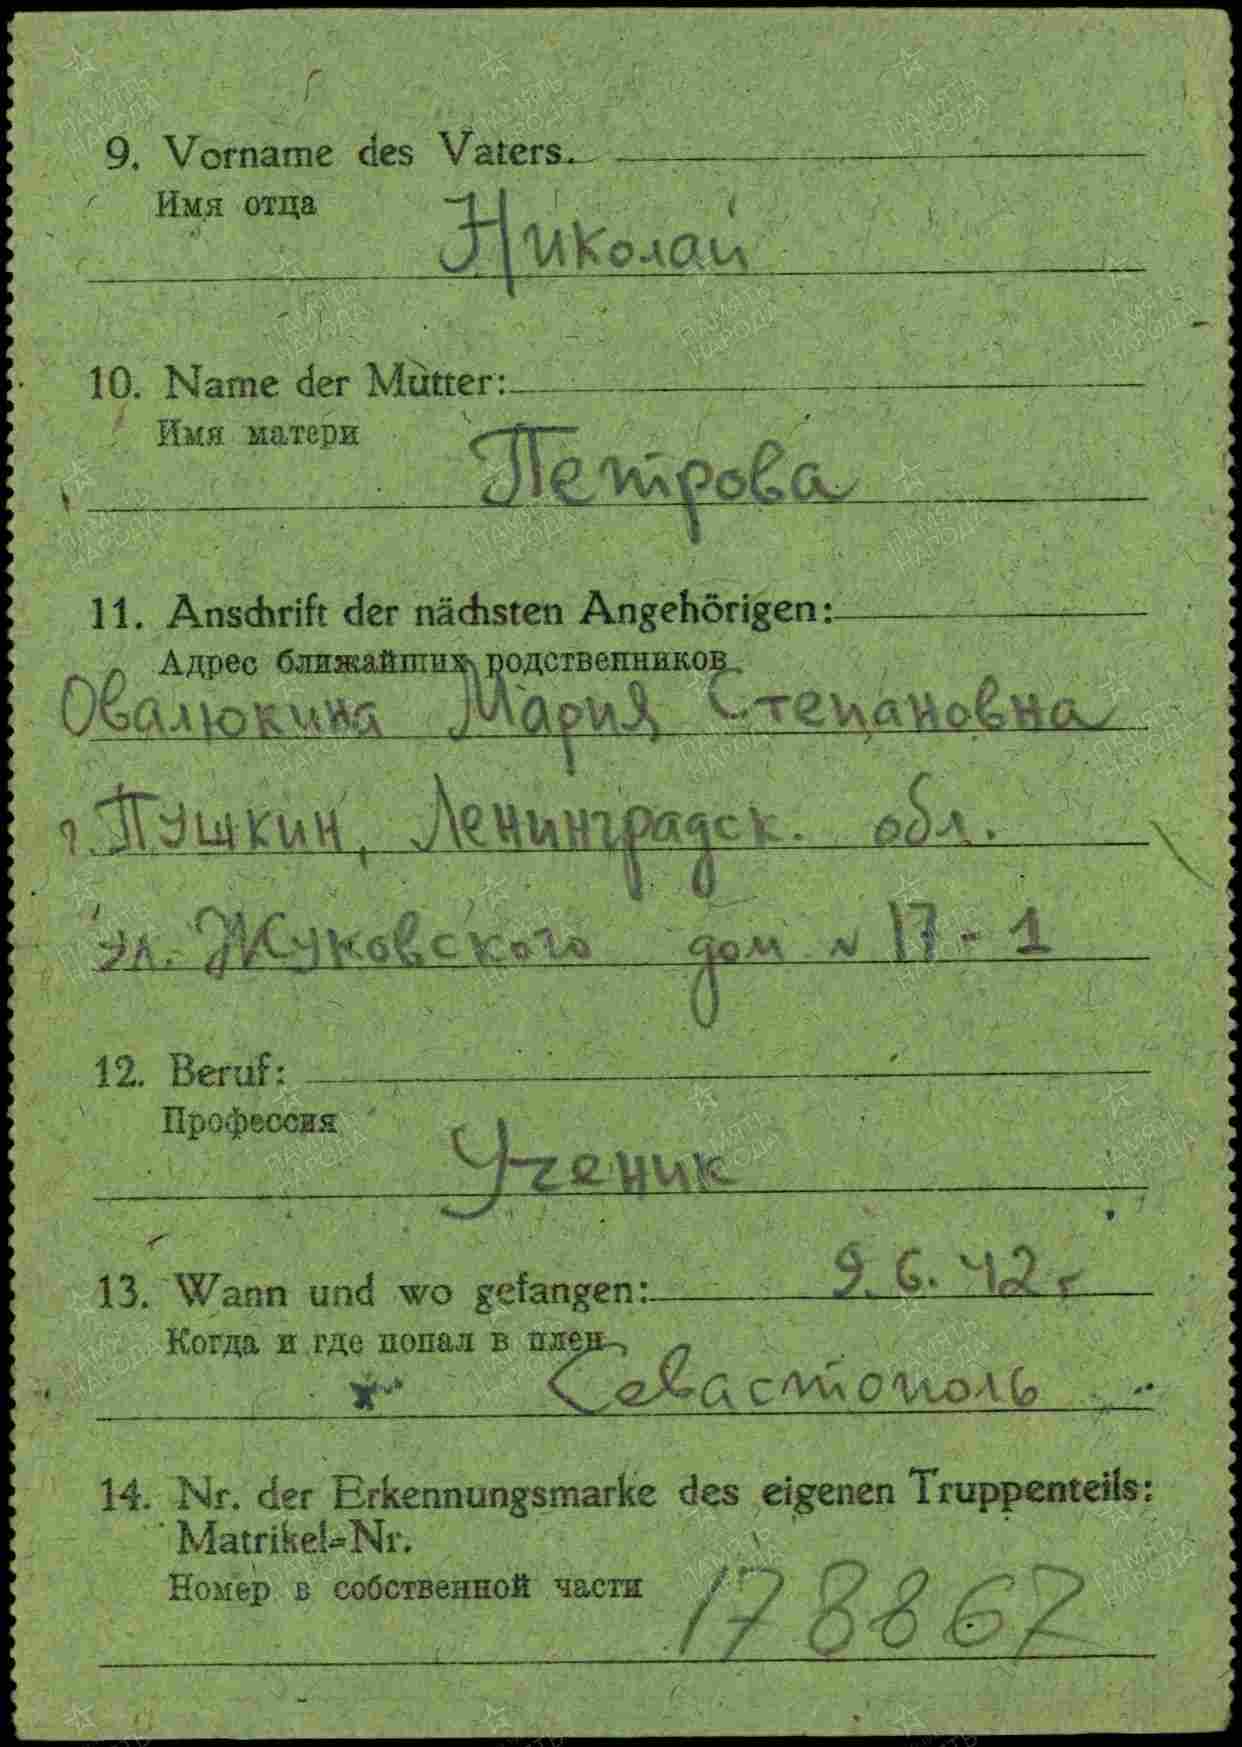 9. Vorname des Vaters.
Имя отца
Николай
10. Name der Mutter:
Имя матери
Петрова
11. Anschrift der nächsten Angehörigen:
Адрес ближайших родственников
Овалюкина Мария Степановна
г. Пушкин, Ленинградск. обл.
ул. Жуковского дом № 17-1
12. Beruf:
Профессия
Ученик
13. Wann und wo gefangen: 9.6.42 г
Когда и где попал в плен
Севастополь
14. Nr. der Erkennungsmarke des eigenen Truppenteils:
Matrikel=Nr.
Номер в собственной части 178867